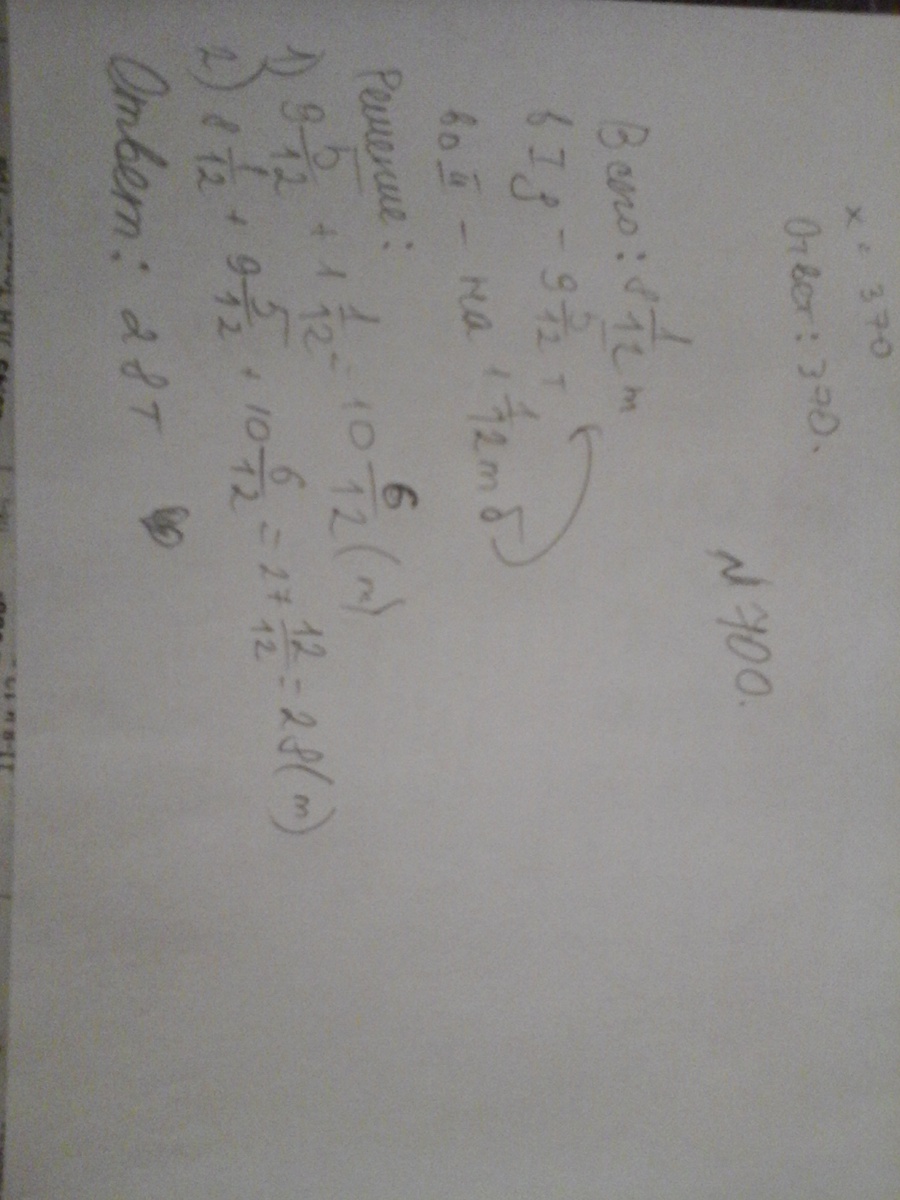 x = 370
Ответ: 370.
N 700.
Всего: 8 1/12 т
в I д - 9 5/12 т
во II - на 1 1/12 т б
Решение:
1) 9 5/12 + 1 1/12 = 10 6/12 (т)
2) 8 1/12 + 9 5/12 + 10 6/12 = 27 12/12 = 28 (т)
Ответ: 28 т